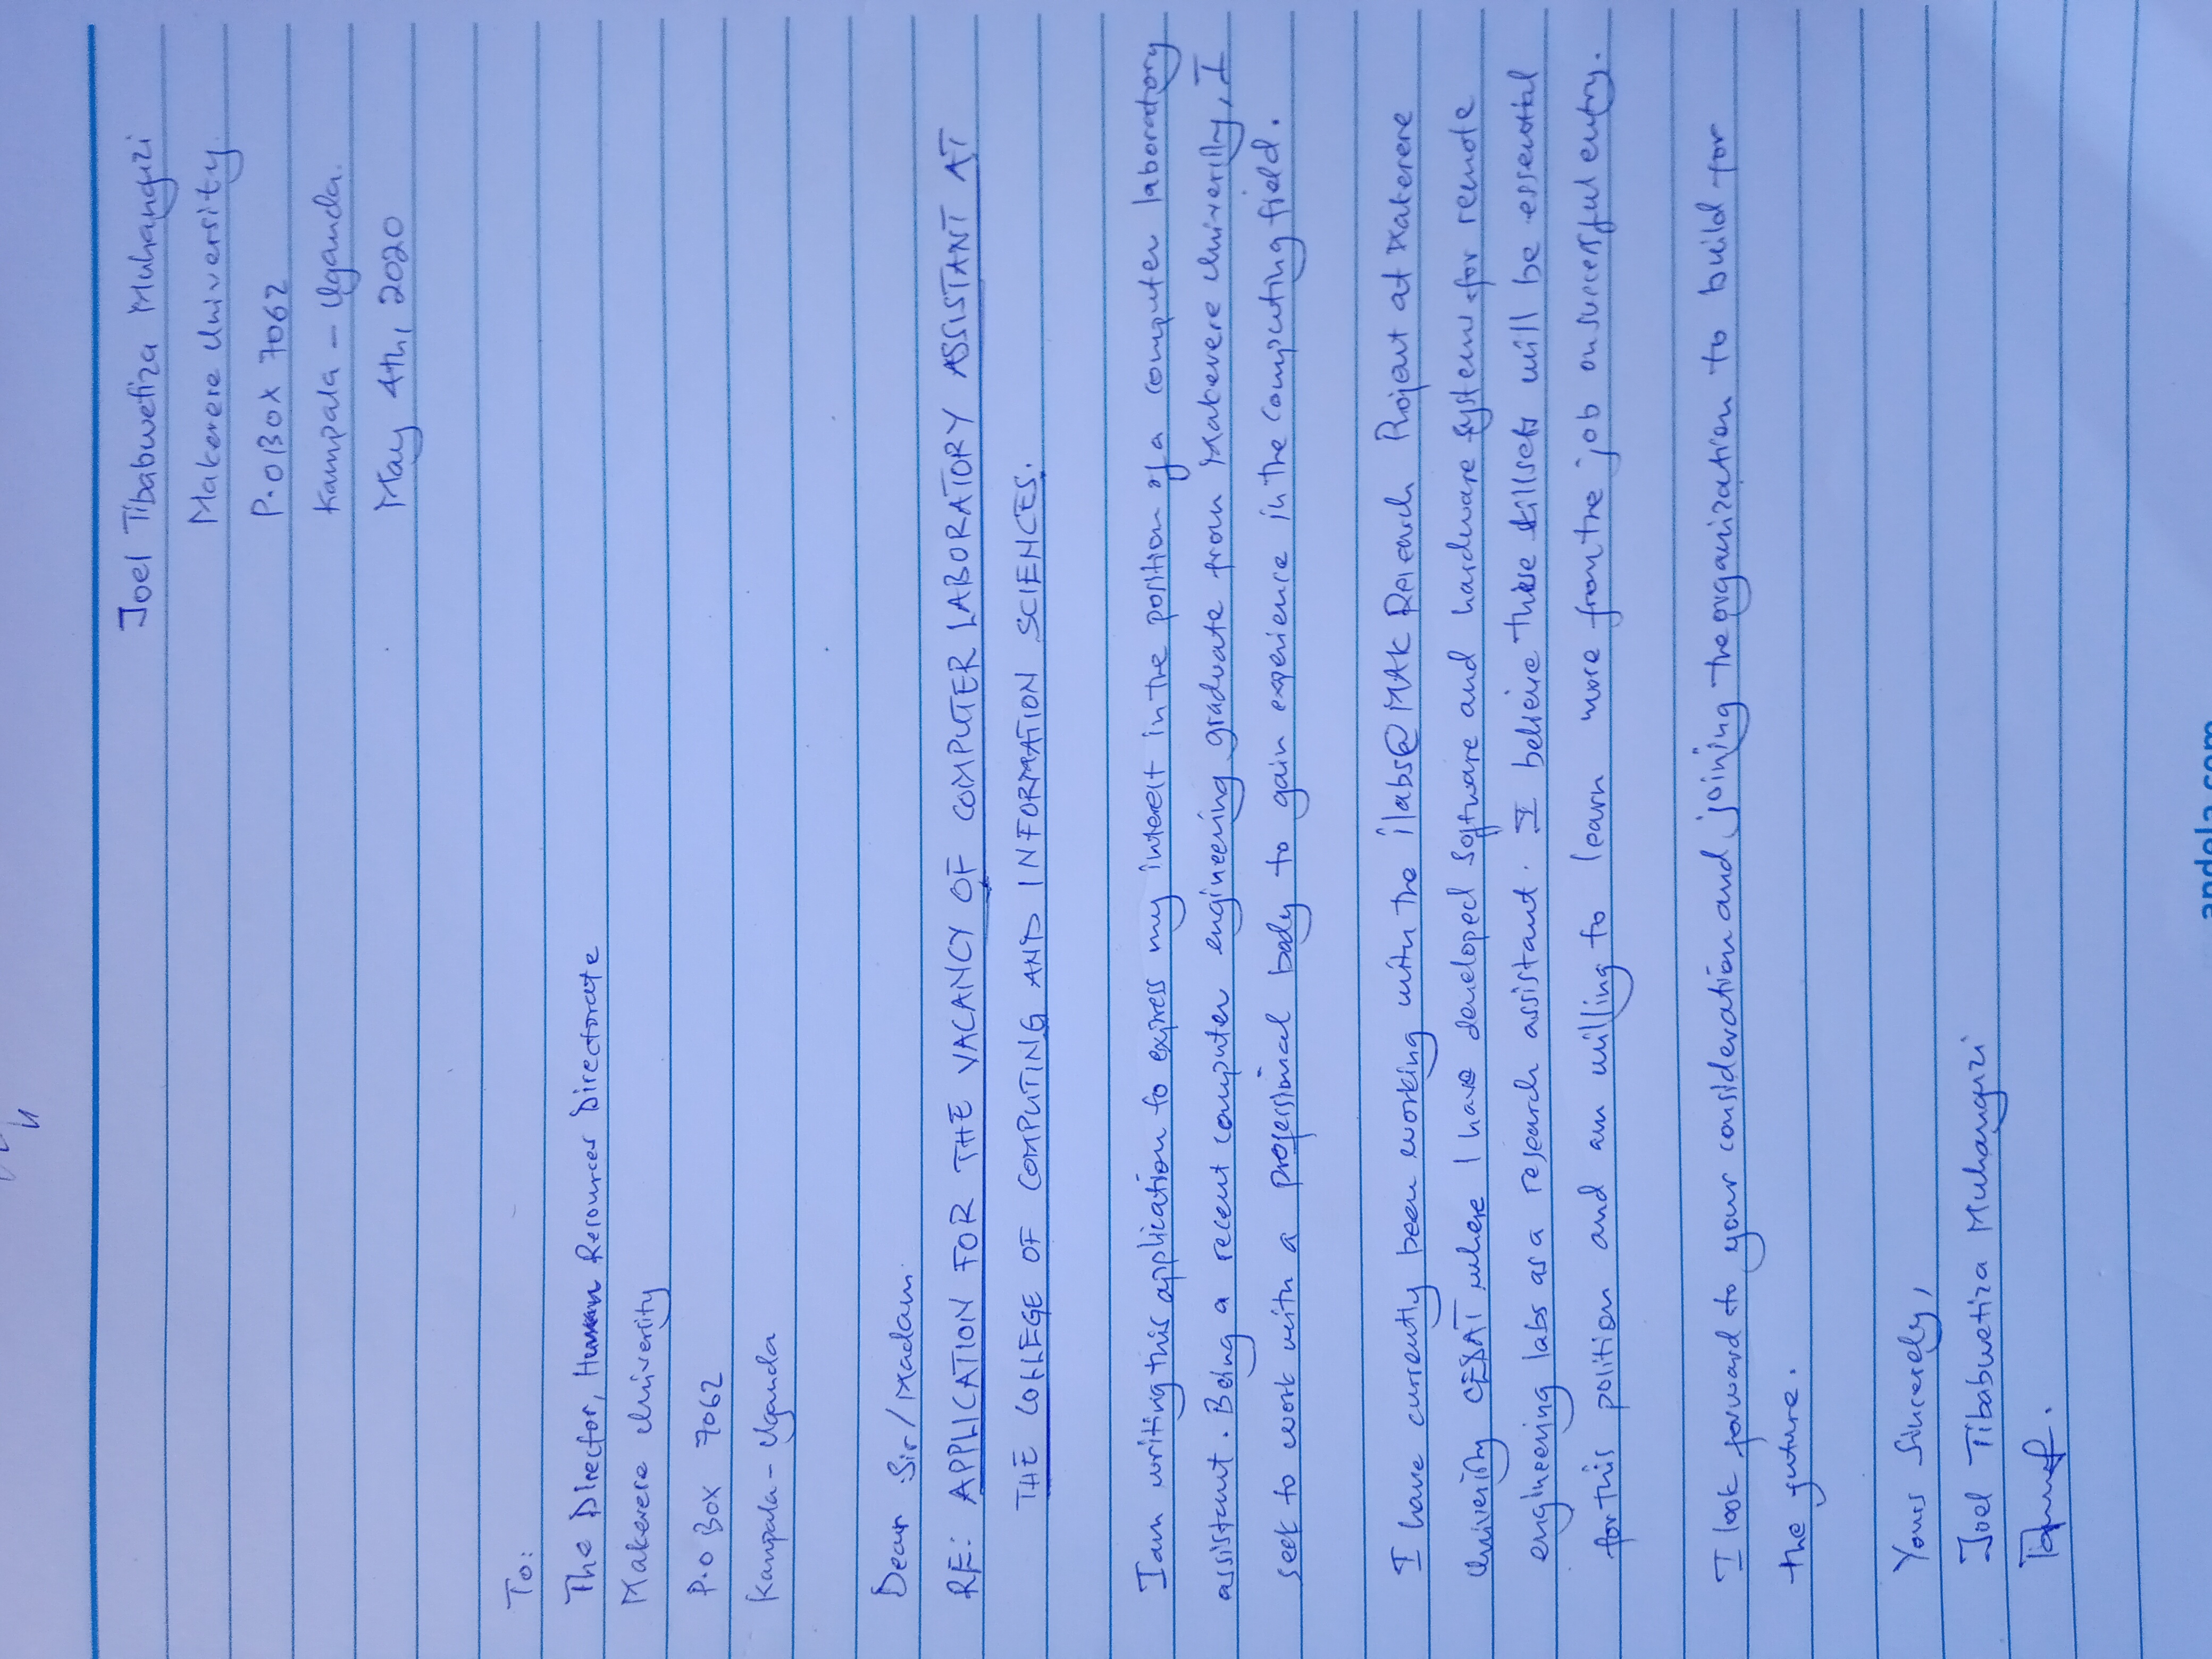 Joel Tibabwetiza Muhangizi
Makerere University
P.O BOX 7062
Kampala - Uganda.
May 4th, 2020
To:
The Director, Human Resources Directorate
Makerere University
P.O Box 7062
Kampala - Uganda
Dear Sir/Madam.
RE: APPLICATION FOR THE VACANCY OF COMPUTER LABORATORY ASSISTANT AT
THE COLLEGE OF COMPUTING AND INFORMATION SCIENCES.
I am writing this application to express my interest in the position of a computer laboratory
assistant. Being a recent computer engineering graduate from Makerere University, I
seek to work with a professional body to gain experience in the computing field.
I have currently been working with the ilabs@MAK Research Project at Makerere
University CEDAT where I have developed software and hardware systems for remote
engineering labs as a research assistant. I believe these skillsets will be essential
for this position and am willing to learn more from the job on successful entry.
I look forward to your consideration and joining the organization to build for
the future.
Yours Sincerely,
Joel Tibabwetiza Muhangizi
andela.com